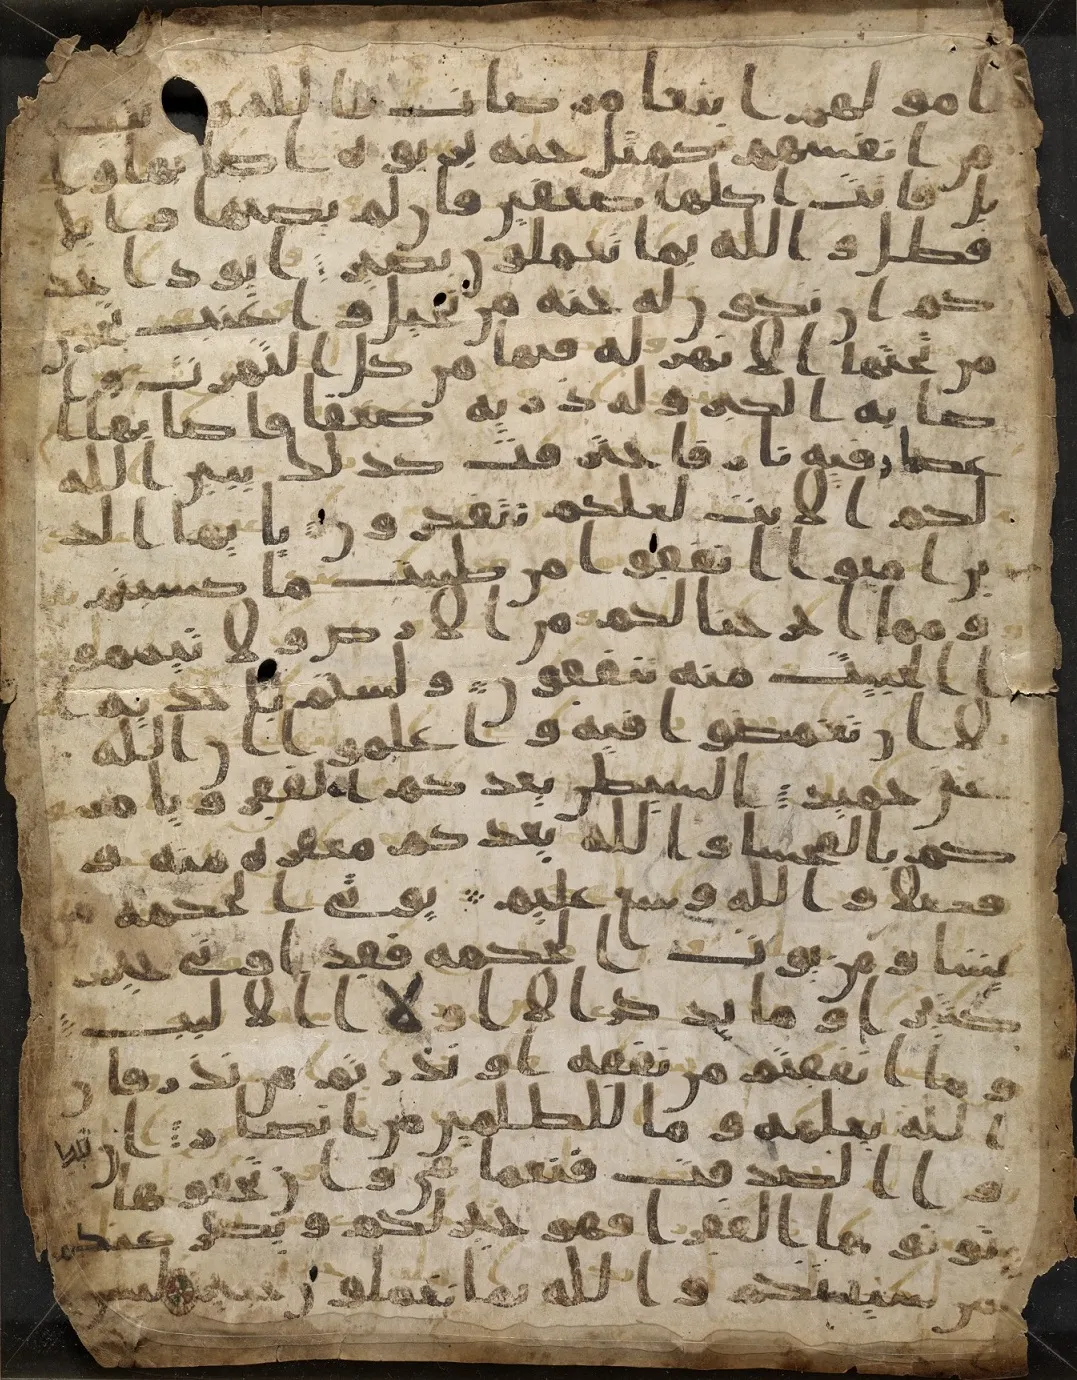 امولهم ابتغا مرضات الله و تثبيتا
من انفسهم كمثل جنه بربوه اصابها وا
بل فاتت اكلها ضعفين فان لم يصبها وابل
فطل و الله بما تعملون بصير ايود احد
كم ان تكون له جنه من نخيل و اعنب تجرى
من تحتها الانهر له فيها من كل الثمرت و ا
صابه الكبر وله ذريه ضعفا فاصابها ا
عصار فيه نار فاحترقت كذلك يبين الله
لكم الايت لعلكم تتفكرون يايها الذ
ين امنوا انفقوا من طيبت ما كسبتم
و مما اخرجنا لكم من الارض و لا تيمموا
ا الخبيث منه تنفقون و لستم باخذيه ا
لا ان تغمضوا فيه و اعلموا ان الله
غنى حميد الشيطن يعدكم الفقر و يامر
كم بالفحشا و الله يعدكم مغفره منه و
فضلا و الله وسع عليم يوتى الحكمه من
يشا و من يوت الحكمه فقد اوتى خيرا
كثيرا و ما يذكر الا اولا ا الالبب
و ما انفقتم من نفقه او نذرتم من نذر فان
الله يعلمه و ما للظلمين من انصار ان تبدو
ا الصدقت فنعما هى و ان تخفوها و
توتوها الفقرا فهو خير لكم و يكفر عنكم
من سيتكم و الله بما تعملون خبير ليس